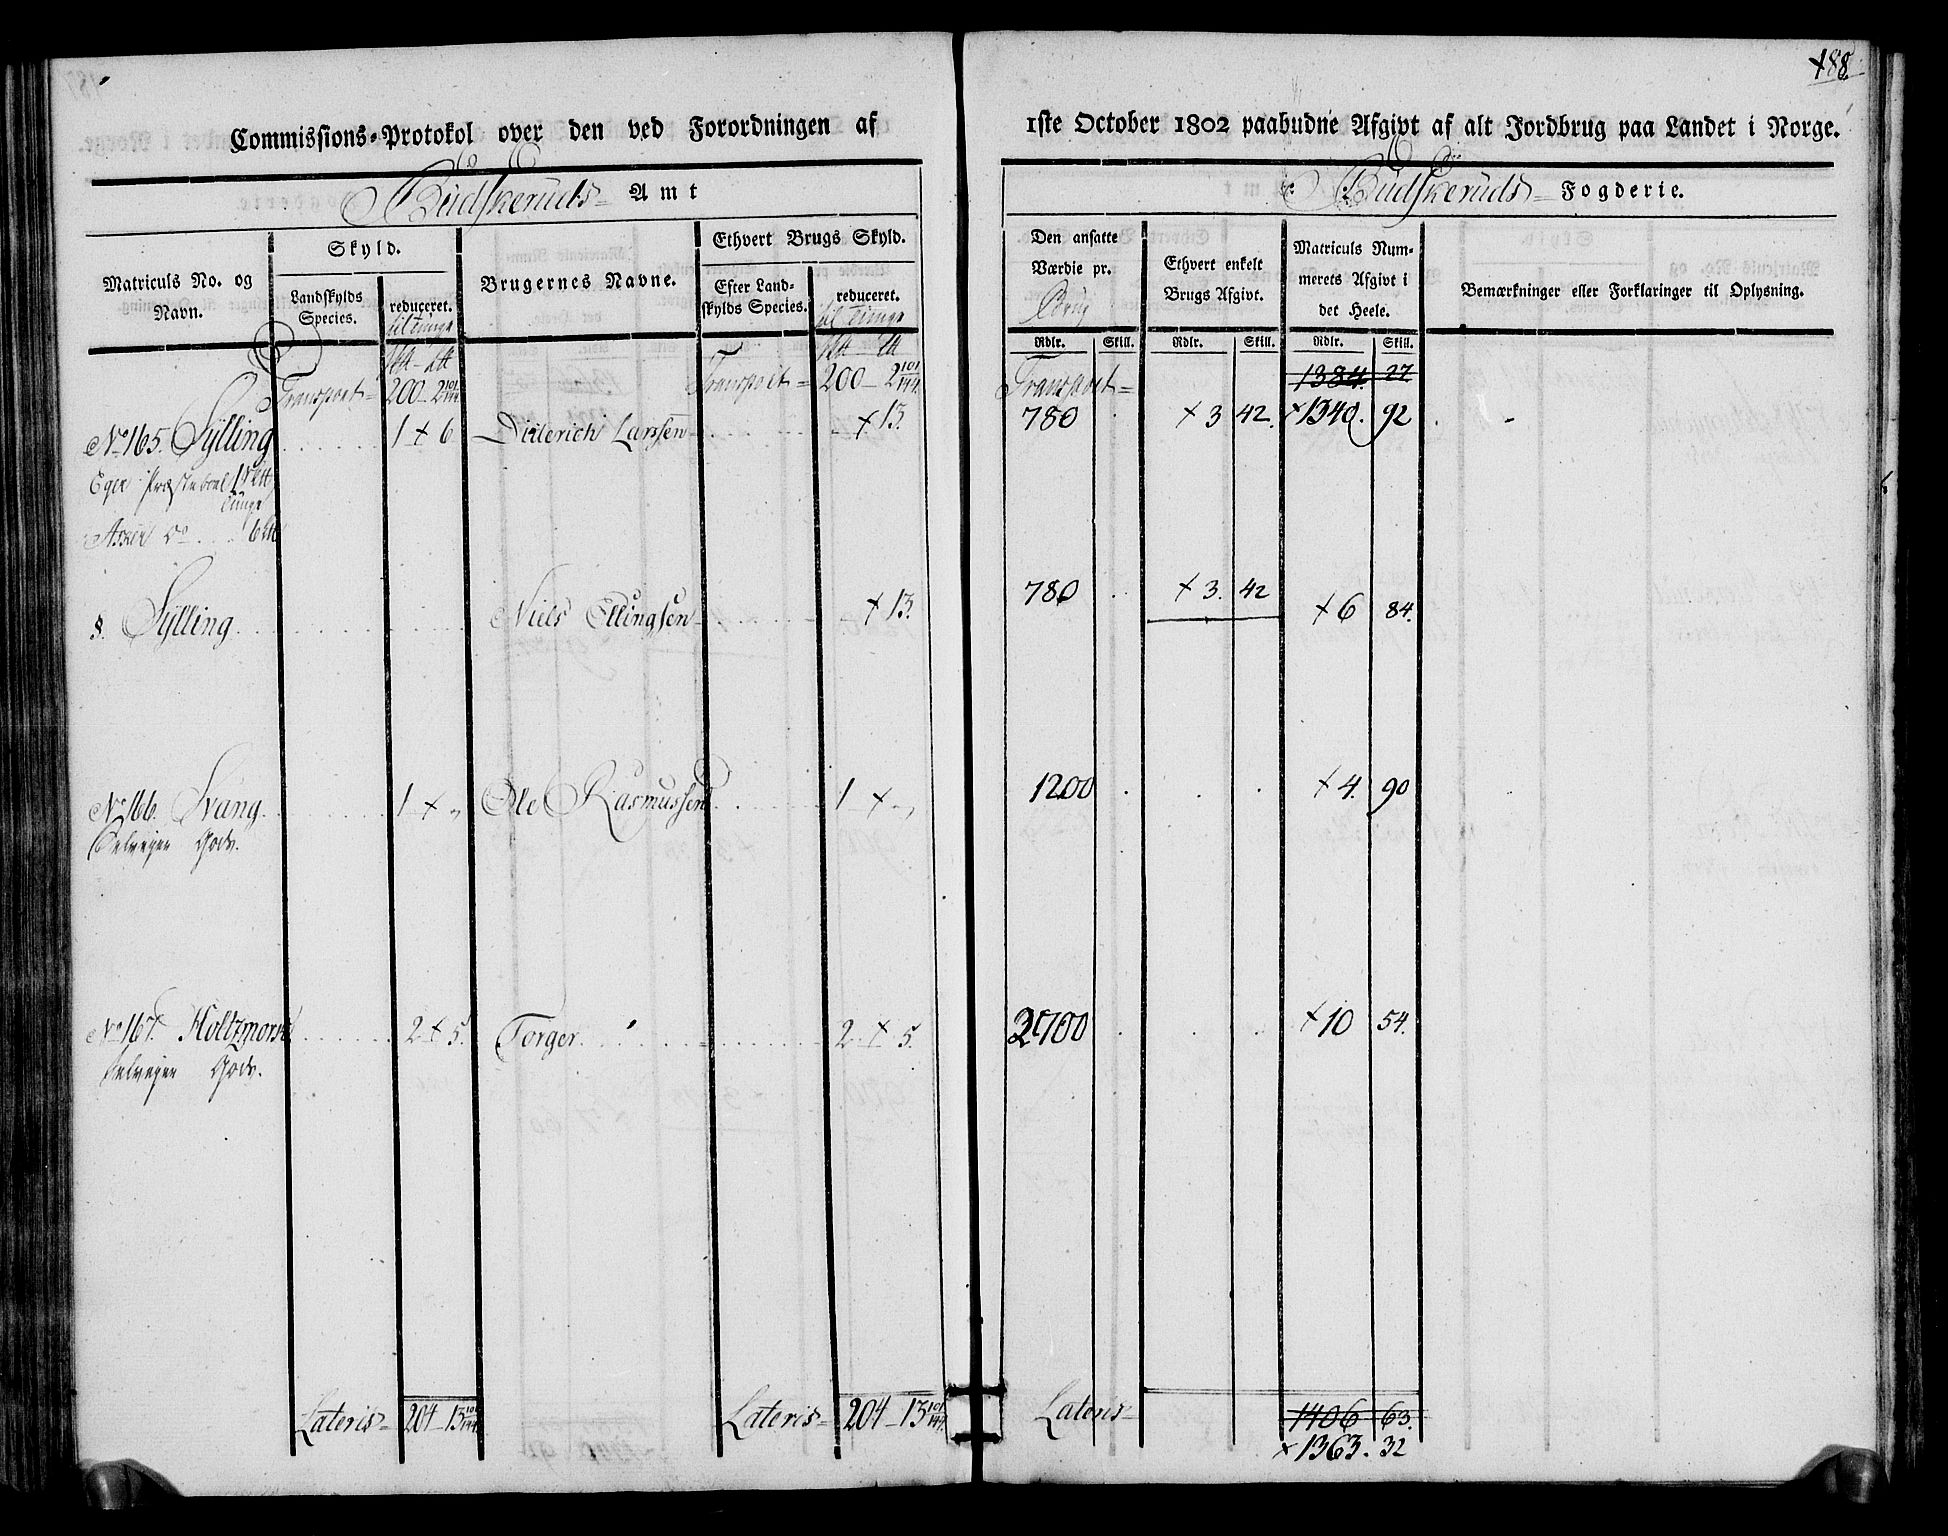 188.
Commissions-Protokol over den ved Forordningen af 1ste October 1802 paabudne Afgivt af alt Jordbrug paa Landet i Norge.
Budskeruds Amt
Budskeruds Fogderie.
Matriculs No. og Navn.
Skyld.
Landskylds Species.
reduceret.
til Tunge
Brugernes Navne.
Ethvert Brugs Skyld.
Efter Landskylds Species.
reduceret.
til Tunge
Den ansatte Værdie pr.
Brug
Ethvert enkelt Brugs Afgivt.
Matriculs Nummerets Afgivt i det Heele.
Bemærkninger eller Forklaringer til Oplysning.
Rdlr. Skill. Rdlr. Skill. Rdlr. Skill.
Transport = 200 - 2 101/144 Transport = 200 - 2 101/144 Transport = 1384. 27
No 165. Sylling 1 + 6 Diderich Larssen + 13. 780 + 3 42. + 1340. 92
Eger Præsteboel 1
Tunge
Asker do 6
§. Sylling Niels Ellingsen + 13. 780 + 3. 42 + 6 84.
No 166. Svang. 1 + „ Ole Rasmussen 1 + „ 1200 + 4. 90
Selveyer Gods.
No 167. Holtzmorsk 2 + 5. Torger. 2. + 5. 2700 + 10 54.
Selveyer Gods.
Lateris = 204 - 13 101/144 Lateris = 204 - 13 101/144 Lateris = 1406 63.
+ 1363. 32